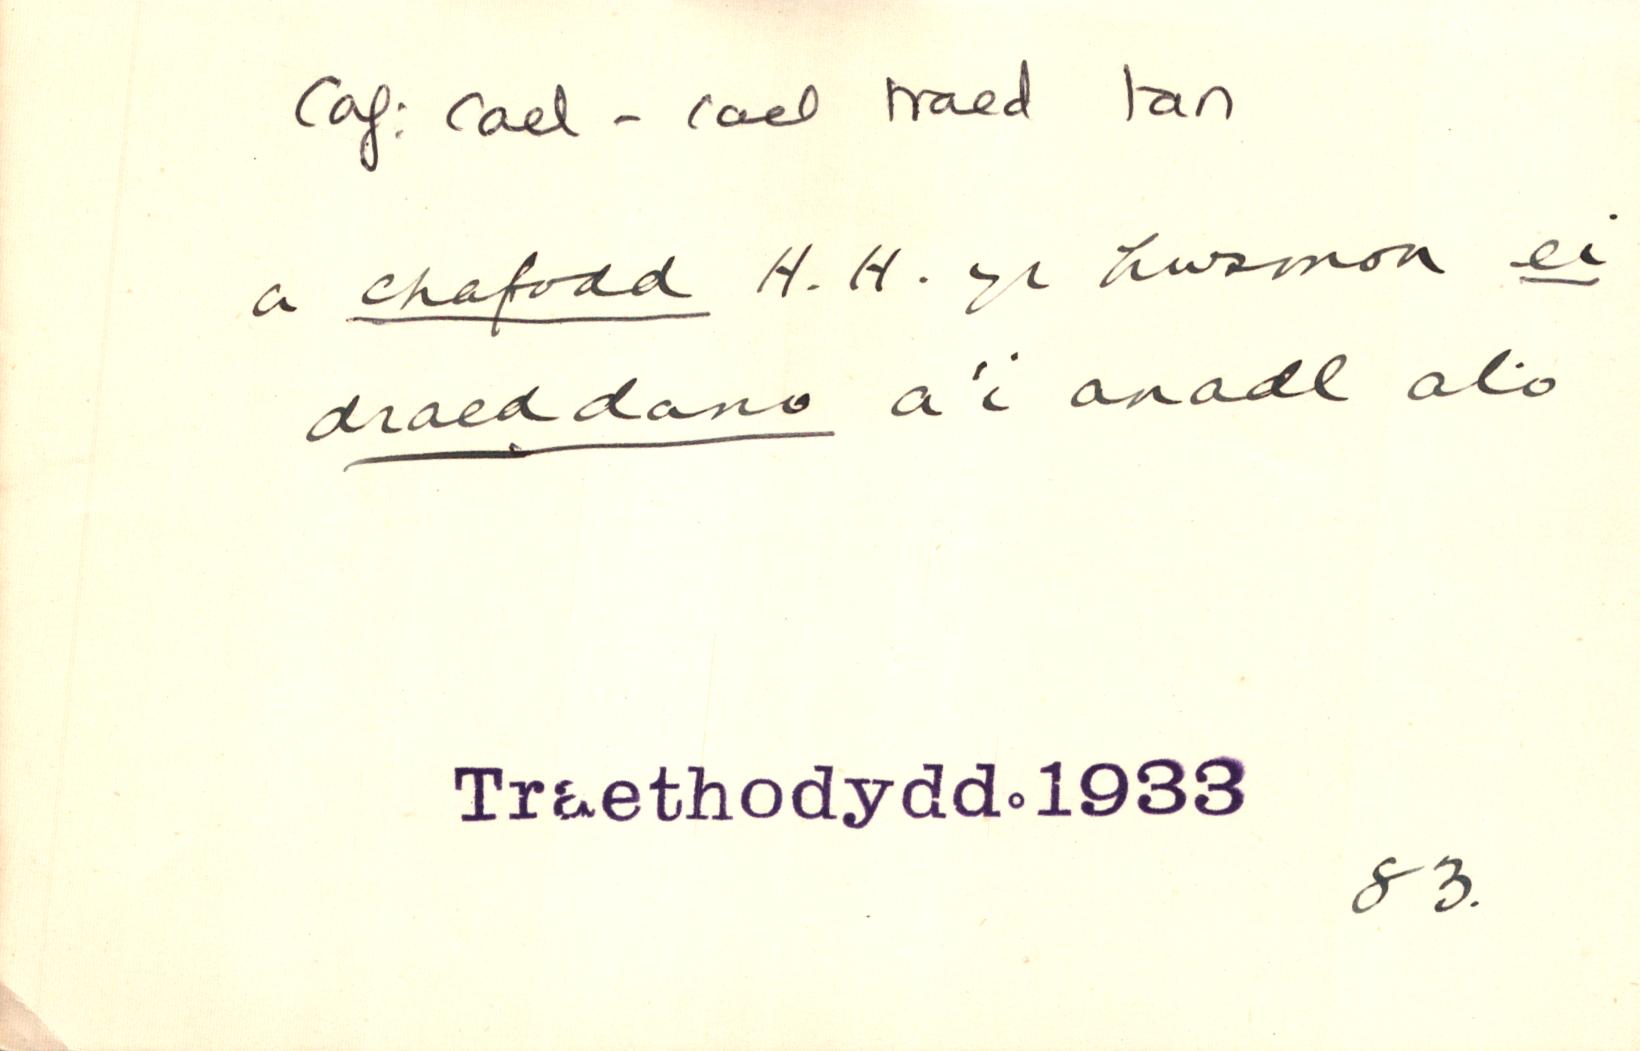 Caf: cael - cael traed tan
a chafodd H. H. yr hwsmon ei
draed dano a'i anadl ato
Traethodydd.1933
83.